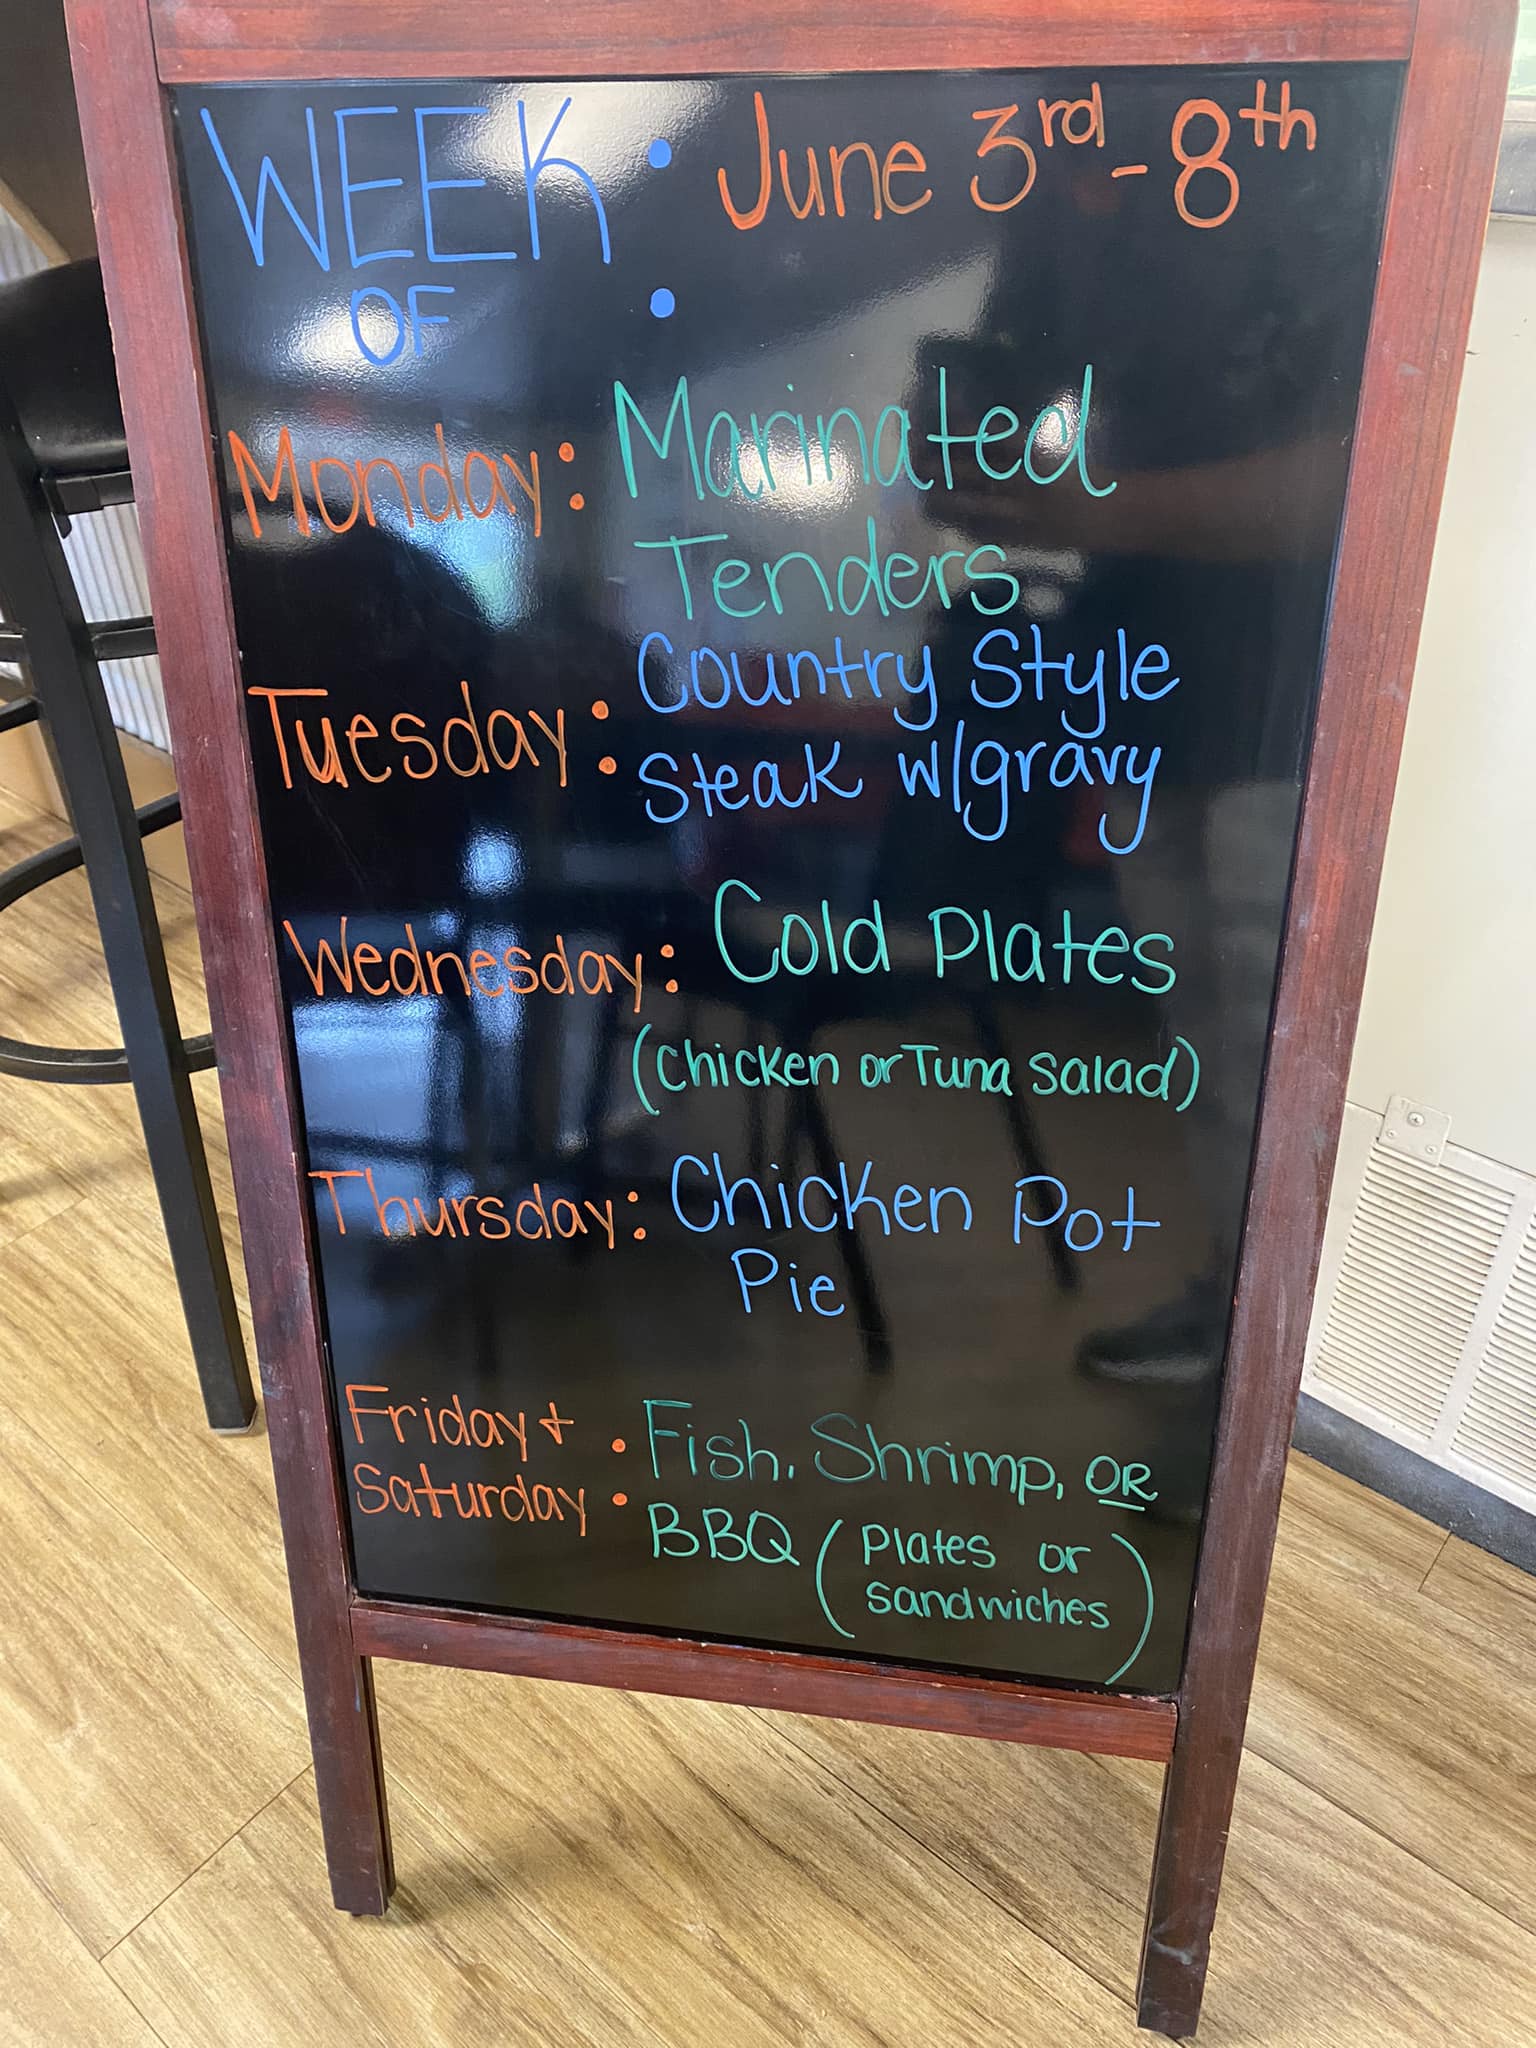 WEEK : June 3rd - 8th
OF
Monday: Marinated
Tenders
Tuesday: Country Style
Steak w/gravy
Wednesday: Cold Plates
(Chicken or Tuna Salad)
Thursday: Chicken Pot
Pie
Friday + : Fish, Shrimp, OR
Saturday BBQ (Plates or
sandwiches)